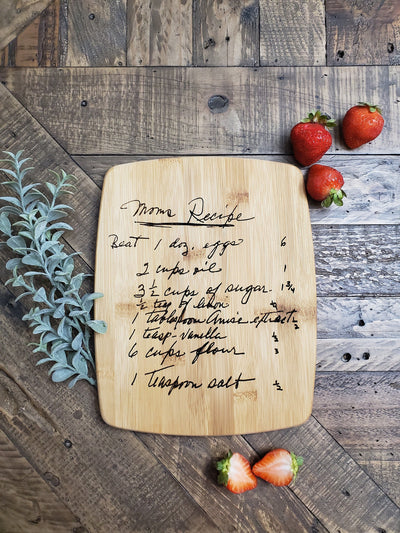 Moms Recipe
Beat 1 doz. eggs 6
2 cups oil 1
3 1/2 cups of sugar 1 3/4
1/2 tsp of lemon
1 Tablespoon Anise extract
1 teasp. vanilla 1/2
6 cups flour 3
1 Teaspoon salt 1/2